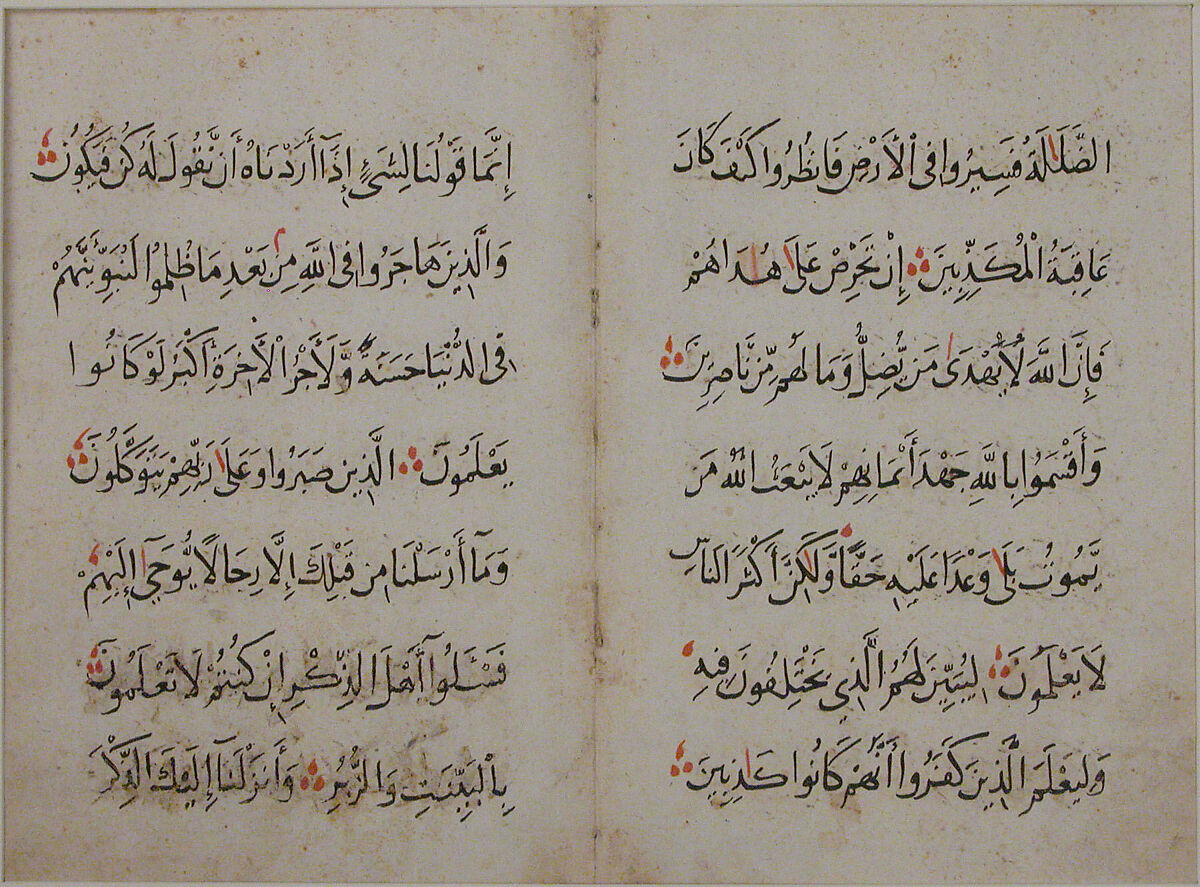 الضَّلَٰلَةُ فَسِيرُوا فِى الْأَرْضِ فَانظُرُوا كَيْفَ كَانَ
عَاقِبَةُ الْمُكَذِّبِينَ إِنْ تَحْرِصْ عَلَىٰ هُدَاهُمْ
فَإِنَّ اللَّهَ لَا يُهْدَىٰ مَن يُّضِلُّ وَمَا لَهُم مِّن نَّاصِرِينَ
وَأَقْسَمُوا بِاللَّهِ جَهْدَ أَيْمَانِهِمْ لَا يَبْعَثُ اللَّهُ مَن
يَّمُوتُ بَلَىٰ وَعْدًا عَلَيْهِ حَقًّا وَّلَٰكِنَّ أَكْثَرَ النَّاسِ
لَا يَعْلَمُونَ لِيُبَيِّنَ لَهُمُ الَّذِي يَخْتَلِفُونَ فِيهِ
وَلِيَعْلَمَ الَّذِينَ كَفَرُوا أَنَّهُمْ كَانُوا كَٰذِبِينَ
إِنَّمَا قَوْلُنَا لِشَىْءٍ إِذَآ أَرَدْنَاهُ أَن نَّقُولَ لَهُ كُن فَيَكُونُ
وَالَّذِينَ هَاجَرُوا فِى اللَّهِ مِن بَعْدِ مَا ظُلِمُوا لَنُبَوِّئَنَّهُمْ
فِى الدُّنْيَا حَسَنَةً وَّلَأَجْرُ الْأَخِرَةِ أَكْبَرُ لَوْ كَانُوا
يَعْلَمُونَ الَّذِينَ صَبَرُوا وَعَلَىٰ رَبِّهِمْ يَتَوَكَّلُونَ
وَمَآ أَرْسَلْنَا مِن قَبْلِكَ إِلَّا رِجَالًا يُّوحَىٰٓ إِلَيْهِمْ
فَسْـَٔلُوٓا أَهْلَ الذِّكْرِ إِن كُنتُمْ لَا تَعْلَمُونَ
بِالْبَيِّنَٰتِ وَالزُّبُرِ وَأَنزَلْنَآ إِلَيْكَ الذِّكْرَ